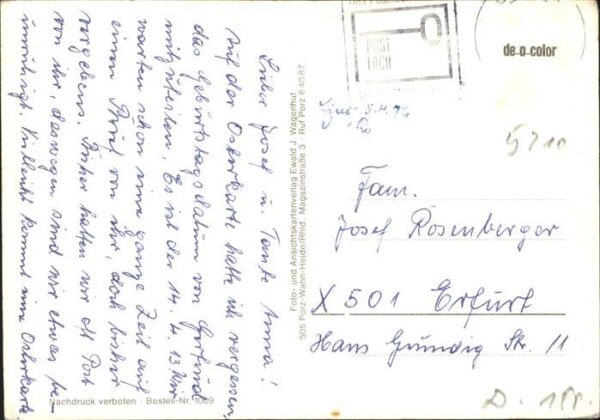 Lieber Josef u. Tante Anna!
Auf der Osterkarte hatte ich vergessen,
das Geburtstagsdatum von
mitzuteilen. Es ist der 14. 4. 13 Wir
warten schon eine ganze Zeit auf
einen Brief von ihr, doch bisher
vergebens. Früher hatten wir oft Post
von ihr, deswegen sind wir etwas be-
unruhigt. Vielleicht kommt zum Osterkarte
Nachdruck verboten · Bestell-Nr. 1009
Foto- und Ansichtskartenverlag Ewald J. Wagenhuf
505 Porz-Wahn-Heide/Rhld. Magazinstraße 3 · Ruf Porz 6 40 87
POST
FACH
de-o-color
5.4.
5710
Fam.
Josef Rosenberger
X 501 Erfurt
Hans Gründig Str. 11